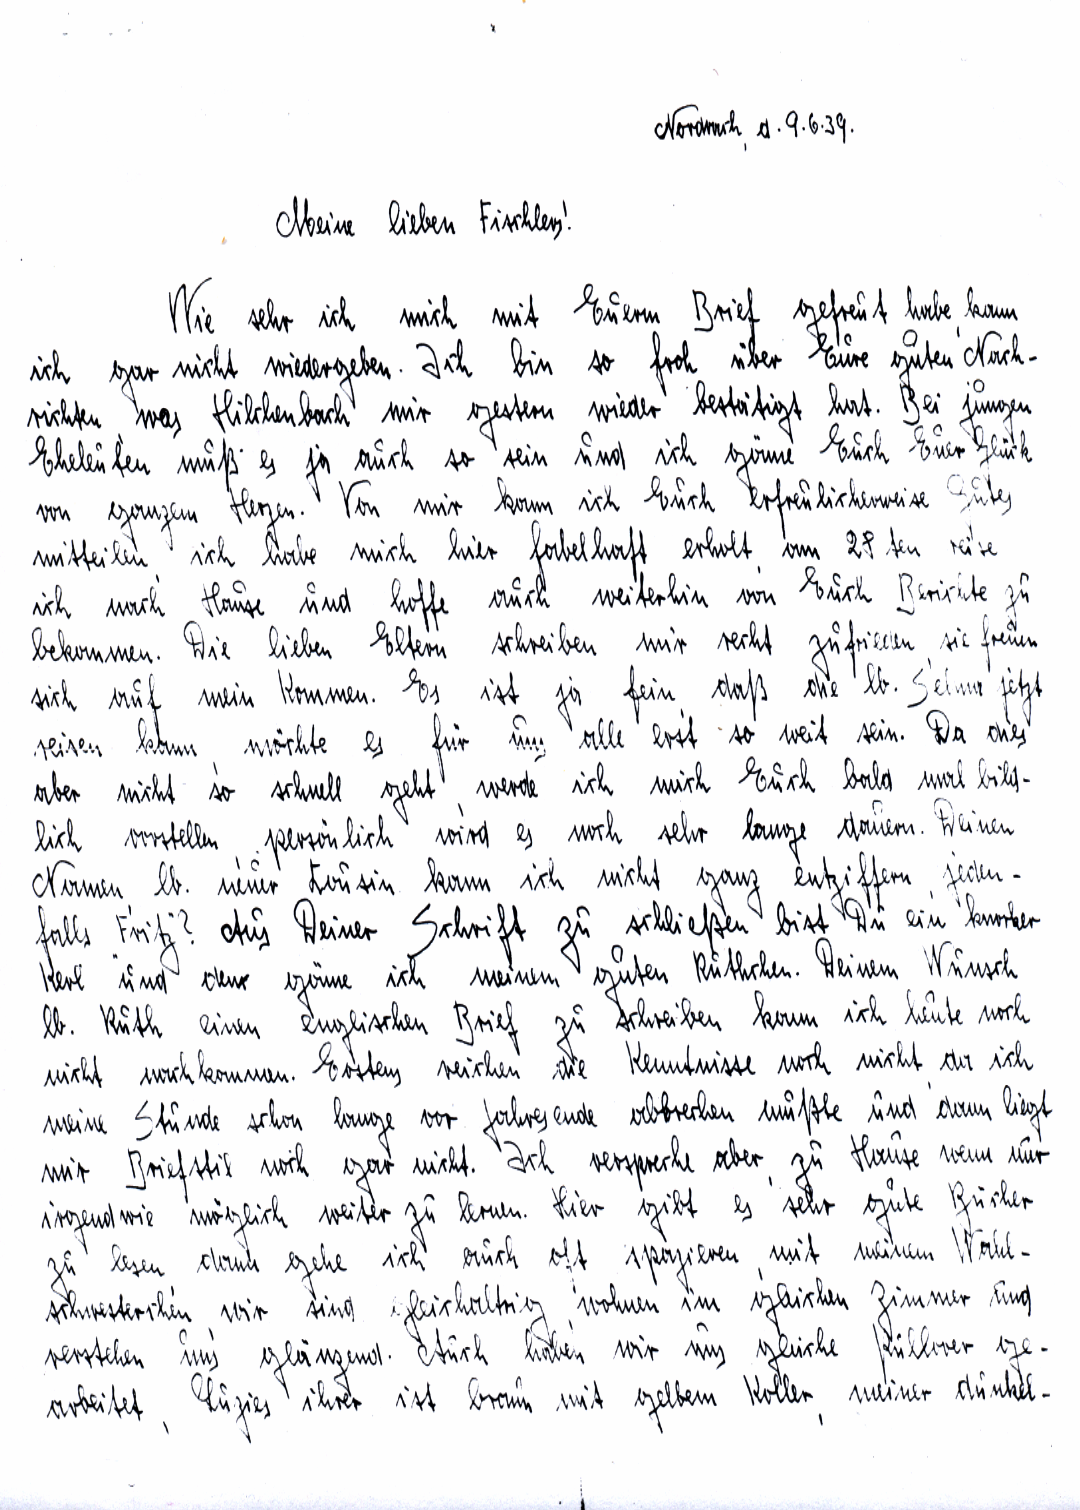 Nordrach, d. 9.6.39.
Meine lieben Fischlers!
Wie sehr ich mich mit Euerm Brief gefreut habe, kann
ich gar nicht wiedergeben. Ich bin so froh über Eure guten Nach-
richten, was Hilchenbach mir gestern wieder bestätigt hat. Bei jungen
Eheleuten muß es ja auch so sein und ich gönne Euch Euer Glück
von ganzem Herzen. Von mir kann ich Euch erfreulicherweise Gutes
mitteilen, ich habe mich hier fabelhaft erholt, am 28ten reise
ich nach Hause und hoffe auch weiterhin von Euch Berichte zu
bekommen. Die lieben Eltern schreiben mir recht zufrieden, sie freuen
sich auf mein Kommen. Es ist ja fein, daß die lb. Selma jetzt
reisen kann, möchte es für uns alle erst so weit sein. Da dies
aber nicht so schnell geht, werde ich mich Euch bald mal bild-
lich vorstellen, persönlich wird es noch sehr lange dauern. Deinen
Namen, lb. neuer Cousin kann ich nicht ganz entziffern, jeden-
falls Fritz? Aus Deiner Schrift zu schließen bist Du ein knorker
Kerl und den gönne ich meinem guten Ruthchen. Deinem Wunsch
lb. Ruth einen englischen Brief zu schreiben kann ich heute noch
nicht nachkommen. Erstens reichen die Kenntnisse noch nicht, da ich
meine Stunde schon lange vor Jahresende abbrechen mußte und dann liegt
mir Briefstil noch gar nicht. Ich verspreche aber, zu Hause wenn nur
irgendwie möglich weiter zu lernen. Hier gibt es sehr gute Bücher
zu lesen, dann gehe ich auch oft spazieren, mit meinem Wahl-
schwesterchen, wir sind gleichaltrig, wohnen im gleichen Zimmer und
verstehen uns glänzend. Auch haben wir uns gleiche Pullover ge-
arbeitet, Luzies ihrer ist braun mit gelbem Koller, meiner dunkel-